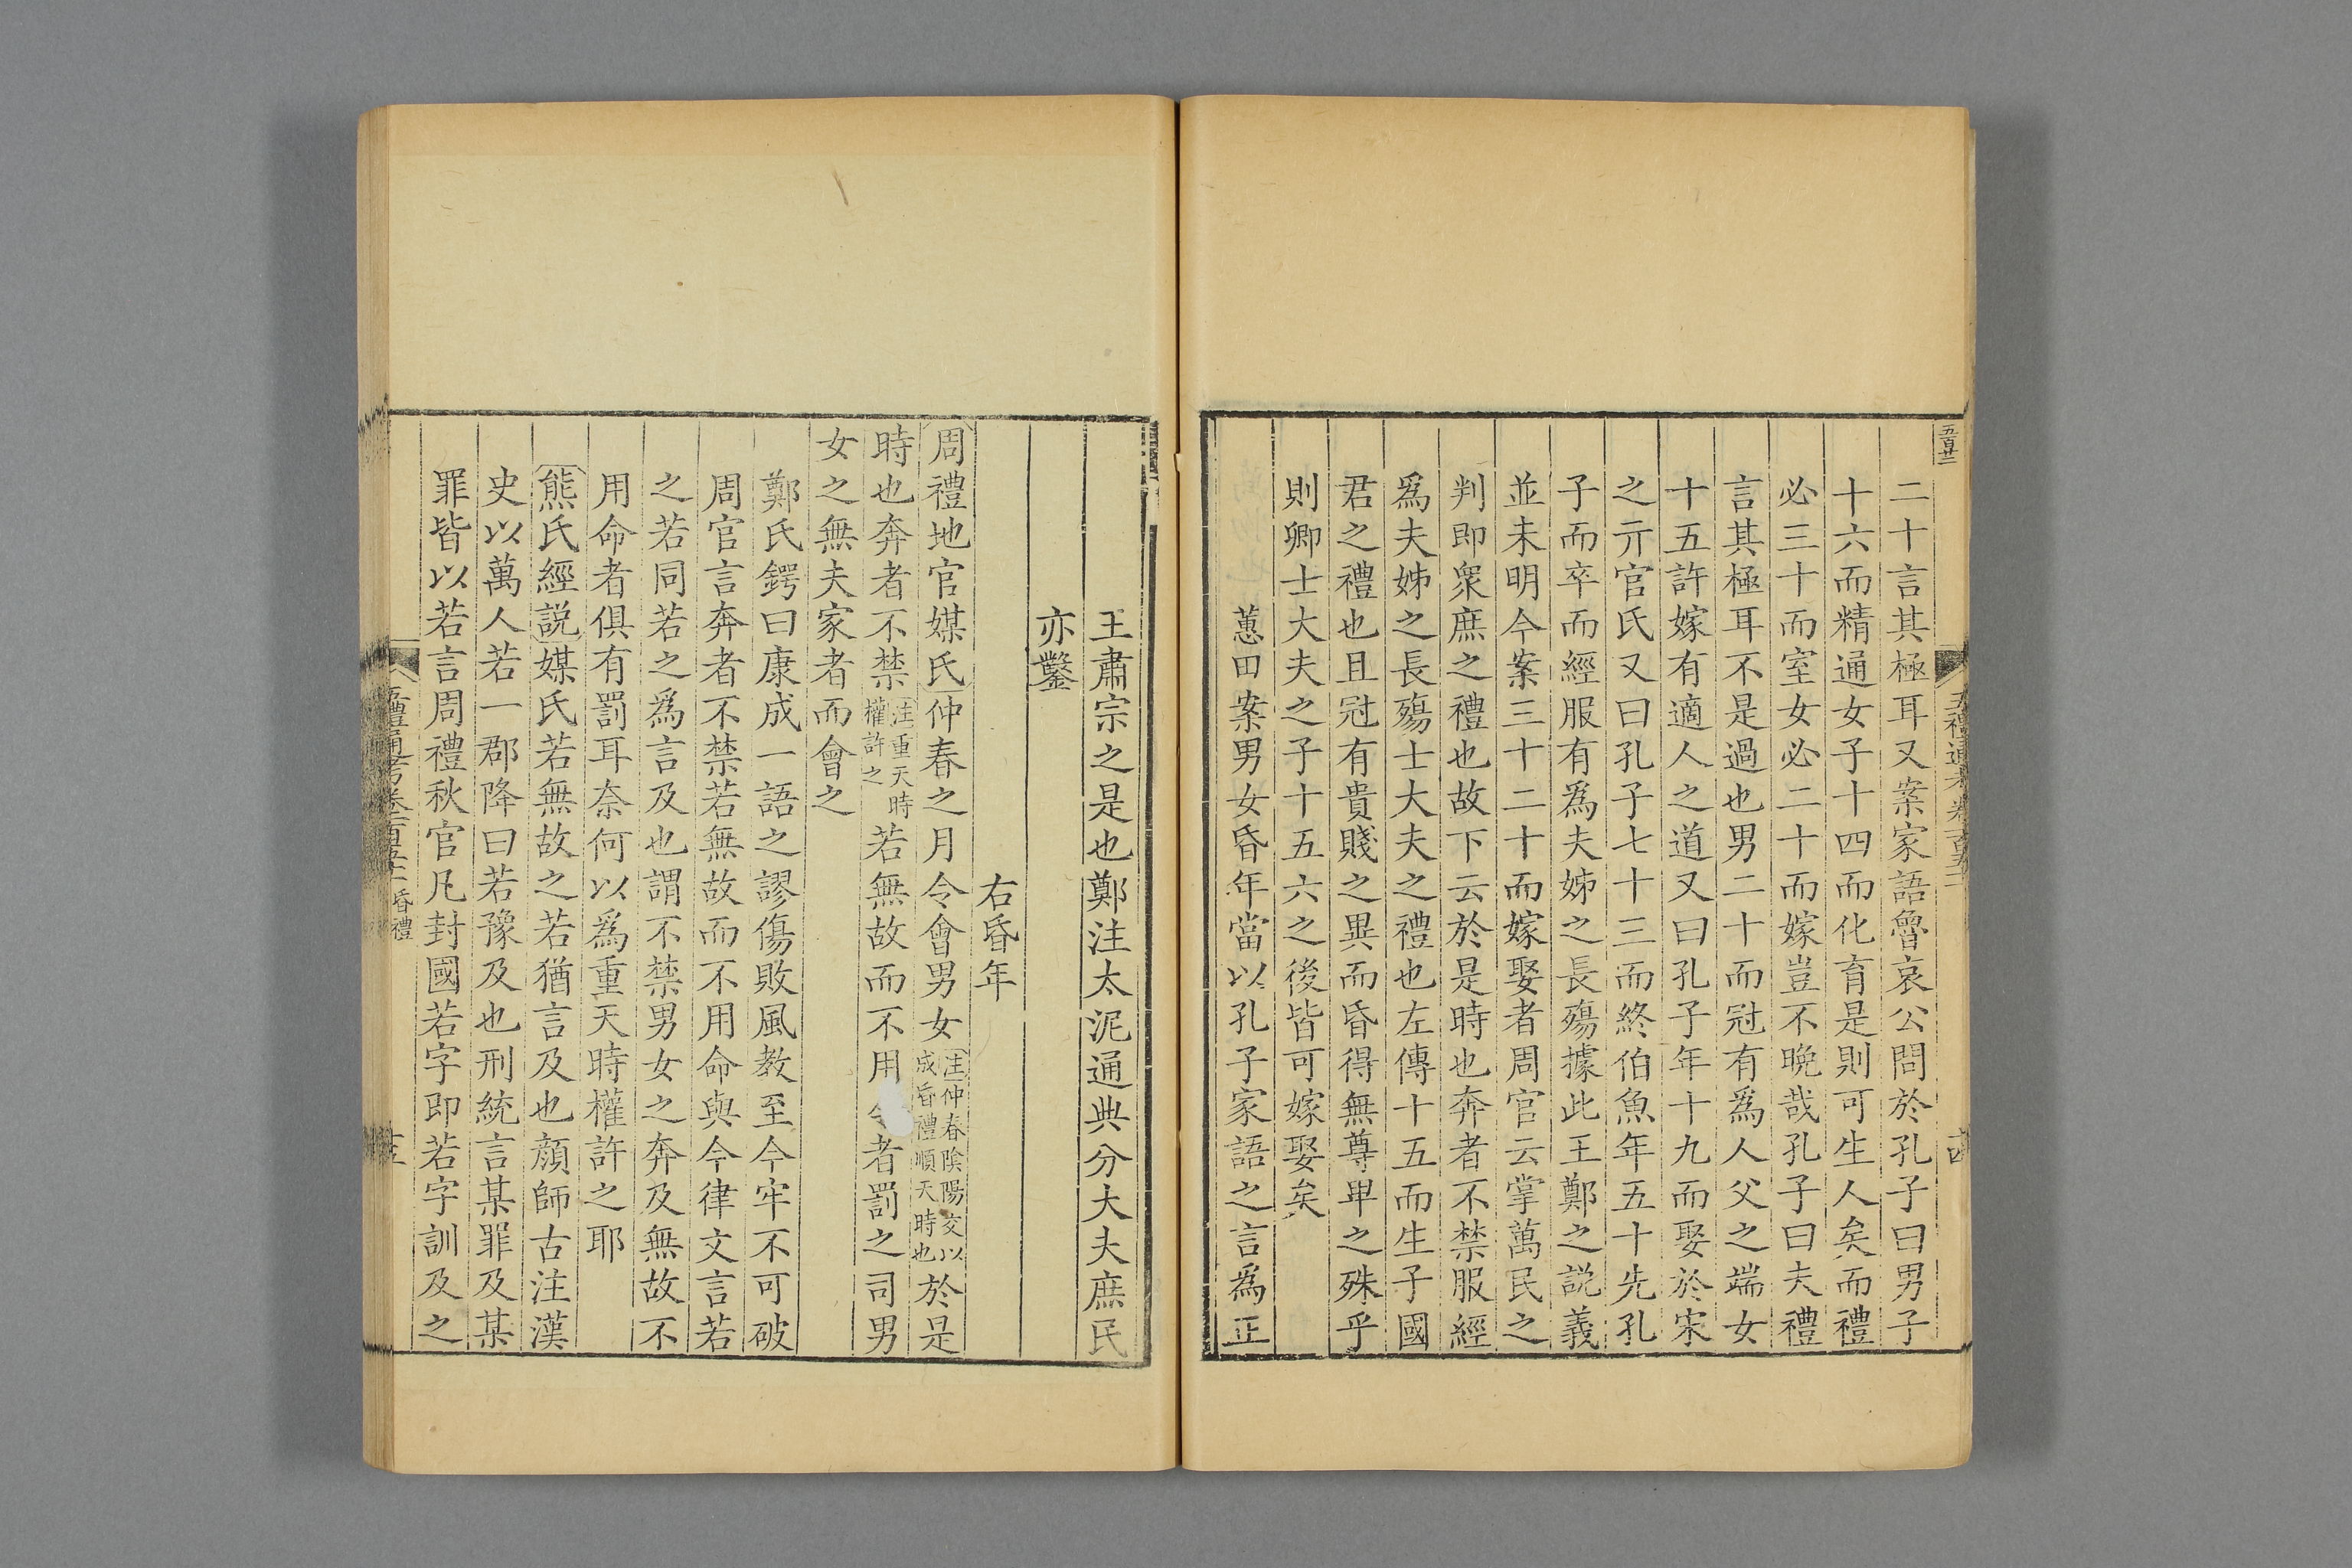 五百廿二
五禮通考卷一百五十一
十四
二十言其極耳又案家語魯哀公問於孔子曰男子
十六而精通女子十四而化育是則可生人矣而禮
必三十而室女必二十而嫁豈不晩哉孔子曰夫禮
言其極耳不是過也男二十而冠有爲人父之端女
十五許嫁有適人之道又曰孔子年十九而娶於宋
之亓官氏又曰孔子七十三而終伯魚年五十先孔
子而卒而經服有爲夫姊之長殤據此王鄭之説義
並未明今案三十二十而嫁娶者周官云掌萬民之
判即衆庶之禮也故下云於是時也奔者不禁服經
爲夫姊之長殤士大夫之禮也左傳十五而生子國
君之禮也且冠有貴賤之異而昏得無尊卑之殊乎
則卿士大夫之子十五六之後皆可嫁娶矣
蕙田案男女昏年當以孔子家語之言爲正
王肅宗之是也鄭注太泥通典分大夫庶民
亦鑿
右昏年
周禮地官媒氏仲春之月令會男女注仲春陰陽交以成昏禮順天時也於是
時也奔者不禁注重天時權許之若無故而不用者罰之司男
女之無夫家者而會之
鄭氏鍔曰康成一語之謬傷敗風教至今牢不可破
周官言奔者不禁若無故而不用命與今律文言若
之若同若之爲言及也謂不禁男女之奔及無故不
用命者俱有罰耳奈何以爲重天時權許之耶
熊氏經説媒氏若無故之若猶言及也顔師古注漢
史以萬人若一郡降曰若豫及也刑統言某罪及某
罪皆以若言周禮秋官凡封國若字即若字訓及之
五禮通考卷一百五十一 昏禮
十五